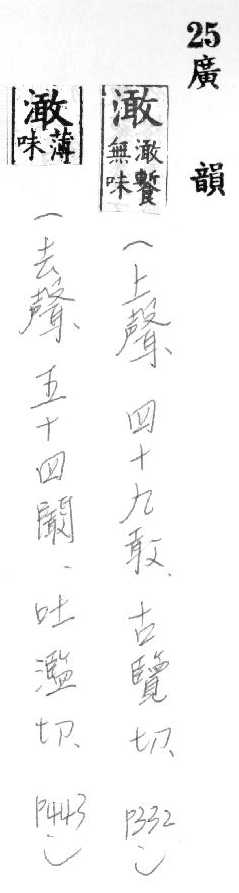 25廣韻
澉 澉無味(上聲、四十九敢、古覽切、P332)
澉 薄味(去聲、五十四闞、吐濫切、P443)